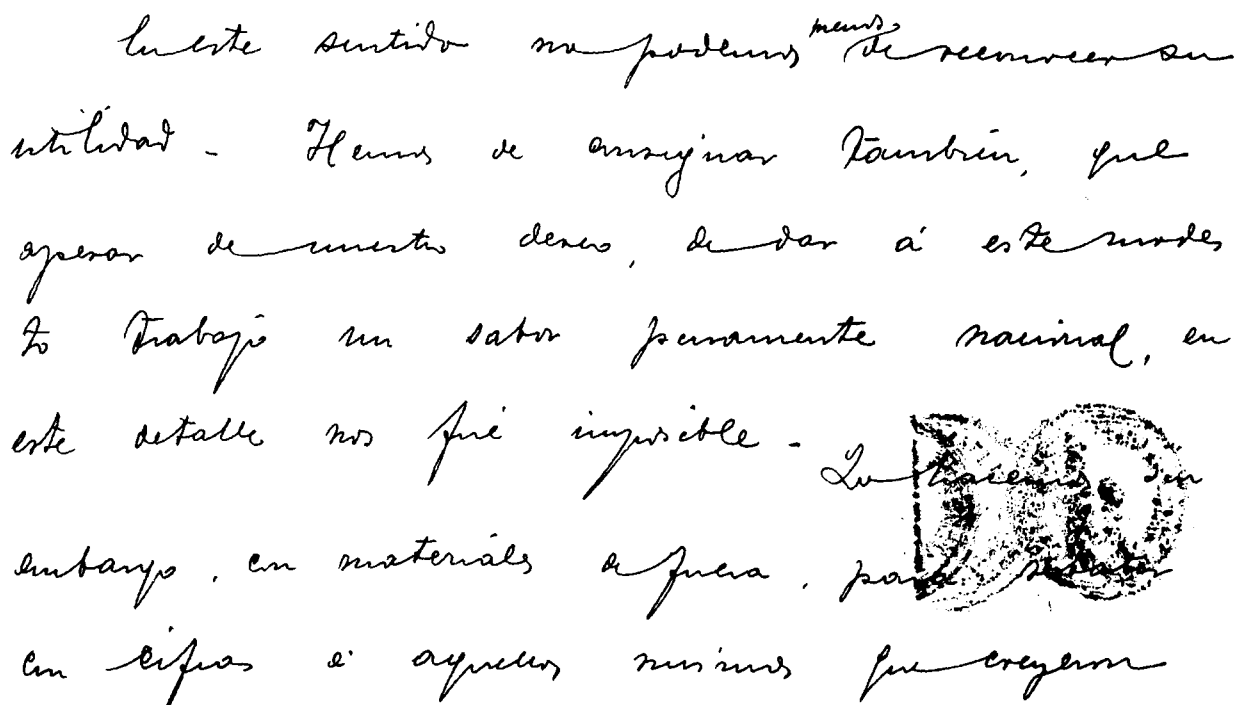 En este sentido no podemos menos de reconocer su
utilidad - Hemos de consignar también, que
apesar de nuestro deseo, de dar á este modes
to trabajo un sabor puramente nacional, en
este detalle nos fué imposible -
Lo hacemos sin
embargo, con materiales de fuera, para rebatir
con cifras á aquellos mismos que creyeron